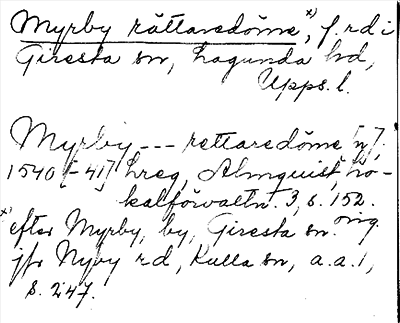 Myrby rättaredöme*), f.rd i
Giresta sn, Lagunda hd,
Upps. l.
Myrby --- rettaredöme [n].
1540[-41] hreg, Almquist, Lo-
kalförvaltn. 3, s. 152.
*) efter Myrby, by, Giresta sn.
jfr Nyby rd, Kulla sn, a.a. 1,
s. 247.